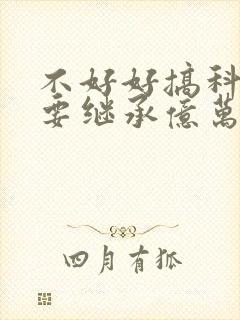 不好好搞科
要继承億萬
四月有狐